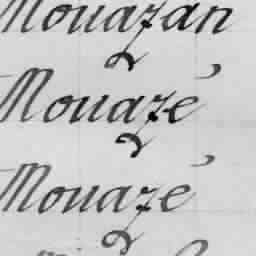 Mouazan
Mouazé
Mouazé